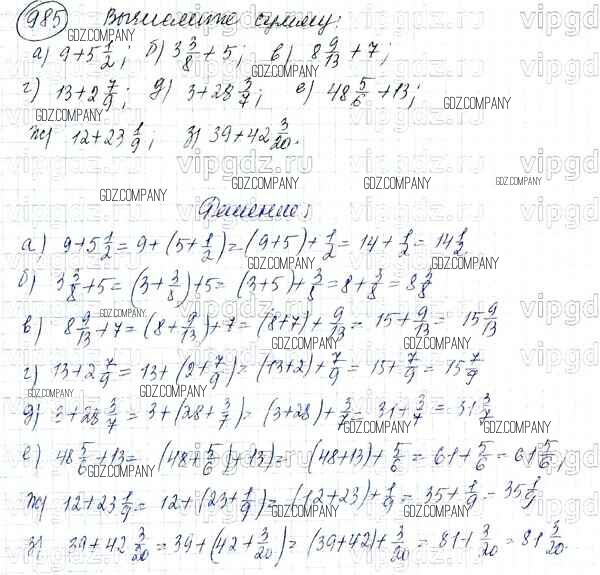 985 Вычислите сумму:
а) 9+5 1/2; б) 3 3/8 + 5; в) 8 9/13 + 7;
г) 13+2 7/9; д) 3+28 3/7; е) 48 5/6 +13;
ж) 12+23 1/9; з) 39+42 3/20.
Решение:
а) 9+5 1/2 = 9+(5+1/2)=(9+5)+1/2=14+1/2=14 1/2
б) 3 3/8 +5=(3+3/8)+5=(3+5)+3/8=8+3/8=8 3/8
в) 8 9/13 +7=(8+9/13)+7=(8+7)+9/13=15+9/13= 15 9/13
г) 13+2 7/9 = 13+(2+7/9)=(13+2)+7/9=15+7/9=15 7/9
д) 3+28 3/7 = 3+(28+3/7)=(3+28)+3/7=31+3/7=31 3/7
е) 48 5/6 +13= (48+5/6)+13)= (48+13)+5/6=61+5/6=61 5/6
ж) 12+23 1/9= 12+(23+1/9)=(12+23)+1/9=35+1/9=35 1/9
з) 39+42 3/20 =39+(42+3/20)=(39+42)+3/20=81+3/20=81 3/20
GDZ.COMPANY
vipgdz.ru